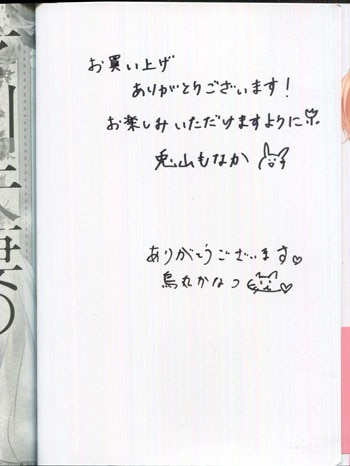 お買い上げ
ありがとうございます!
お楽しみいただけますように
兎山もなか
ありがとうございます♡
烏丸かなつ